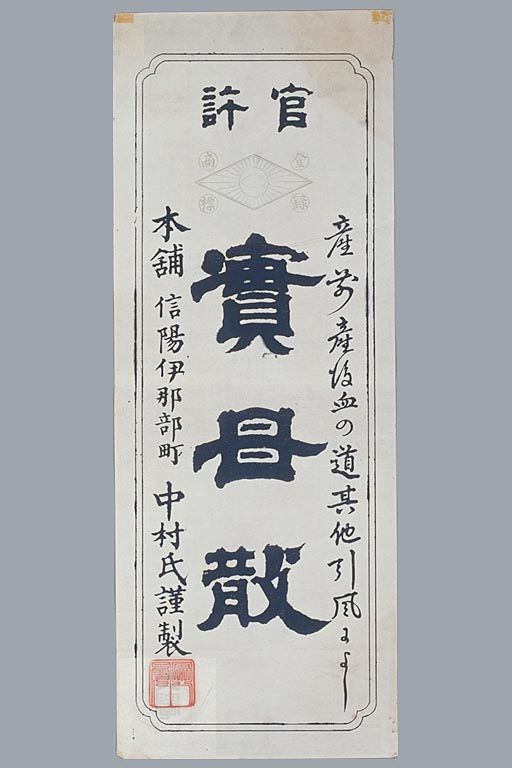 官許
登録
商標
産前産後血の道其他引風によし
實母散
本舗 信陽伊那部町 中村氏謹製